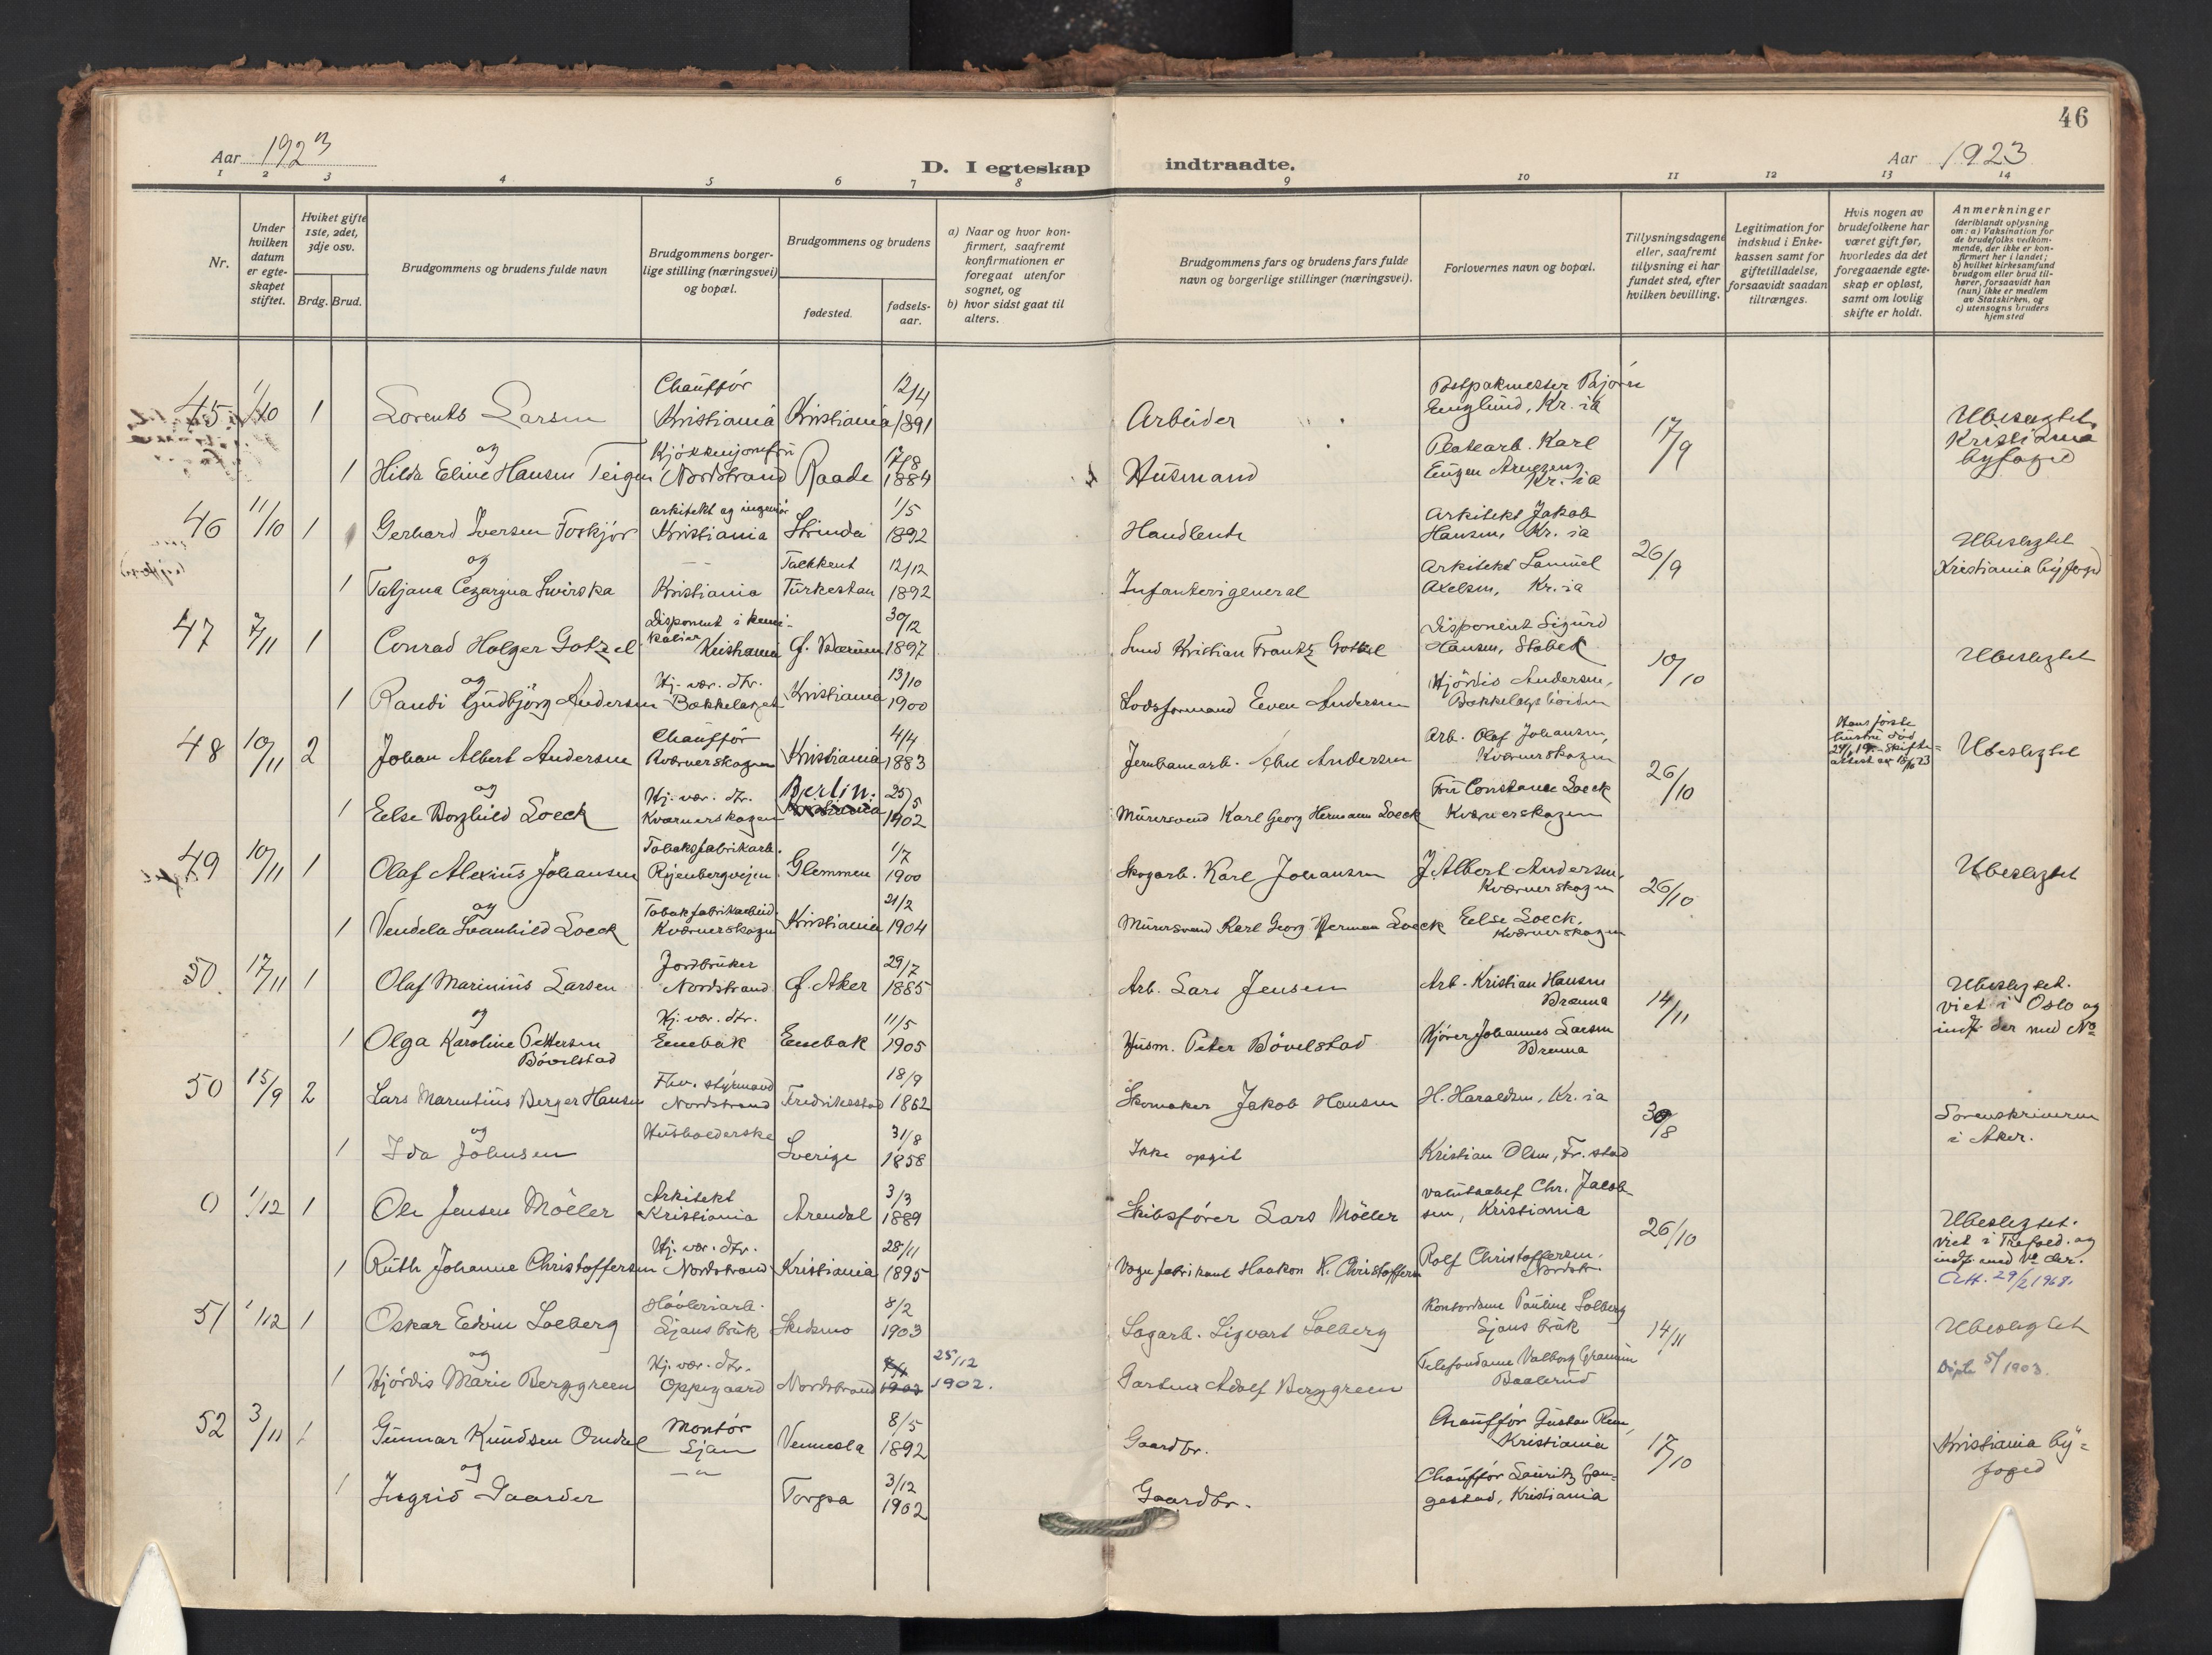 46
Aar 1923
D. I egteskap indtraadte.
Aar 1923
1 2 3 4 5 6 7 8 9 10 11 12 13 14
Nr.
Under hvilken datum er egte-skapet stiftet.
Hviket gifte 1ste, 2det, 3dje osv.
Brdg. Brud.
Brudgommens og brudens fulde navn
Brudgommens borger-
lige stilling (næringsvei)
og bopæl.
Brudgommens og brudens
fødested.
fødsels-
aar.
a) Naar og hvor kon-
firmert, saafremt
konfirmationen er
foregaat utenfor
sognet, og
b) hvor sidst gaat til
alters.
Brudgommens fars og brudens fars fulde
navn og borgerlige stillinger (næringsvei).
Forlovernes navn og bopæl.
Tillysningsdagene
eller, saafremt
tillysning ei har
fundet sted, efter
hvilken bevilling.
Legitimation for
indskud i Enke-
kassen samt for
giftetilladelse,
forsaavidt saadan
tiltrænges.
Hvis nogen av
brudefolkene har
været gift før,
hvorledes da det
foregaaende egte-
skap er opløst,
samt om lovlig
skifte er holdt.
Anmerkninger
(deriblandt oplysning
om: a) Vaksination for
de brudefolks vedkom-
mende, der ikke er kon-
firmert her i landet;
b) hvilket kirkesamfund
brudgom eller brud til-
hører, forsaavidt han
(hun) ikke er medlem
av Statskirken, og
c) utensogns bruders
hjemsted
45 1/10 1 Lorents Larsen Chauffør Kristiania Kristiania 12/4 1891 Arbeider Postpakmester Bjørn Englund, Kr.ia 17/9 Ubeslegtet. Kristiania byfoged
og
1 Hilda Eline Hansen Teigen Nordstrand Raade 17/8 1884 Husmand Platearb. Karl Kr.ia
46 11/10 1 Gerhard Iversen Foskjør arkitekt og ingeniør Kristiania Strinda 1/5 1892 Handlende Arkitekt Jakob Hansen, Kr.ia 26/9 Ubeslegtet Kristiania byfoged
og
1 Tatjana Cezargna Swirska Kristiania Taschkent Turkestan 12/12 1892 Infanterigeneral Arkitekt Samuel Axelsen, Kr.ia
47 7/11 1 Conrad Holger Gotzel Disponent i kemi-kalier Kristiania Ø. Bærum 30/12 1897 Kristian Frantz Gotzel Disponent Sigurd Hansen, Stabek 10/10 Ubeslegtet
og
1 Randi Gudbjørg Andersen Hj. vær. dtr. Bækkelaget Kristiania 13/10 1900 Losformand Even Andersen Hjørdis Andersen,
48 10/11 2 Johan Albert Andersen Chauffør Kværnerskogen Kristiania 4/4 1883 Jernbanearb. Andersen Arb. Olaf Johansen, Kværnerskogen 26/10 Hans første hustru død Ubeslegtet
og
1 Else Borghild Loeck Hj. vær. dtr. Kværnerskogen Berlin. Kristiania 25/5 1902 Murersvend Karl Georg Hermann Loeck Fru Constance Loeck Kværnerskogen
49 10/11 1 Olaf Alexius Johansen Tobaksfabrikarb. Ryenbergveien Glemmen 1/7 1900 Skogarb. Karl Johansen J. Albert Andersen, Kværnerskogen 26/10 Ubeslegtet
og
1 Vendela Svanhild Loeck Tobakfabrikarbeid. Kværnerskogen Kristiania 21/2 1904 Murersvend Karl Georg Herman Loeck Else Loeck, Kværnerskogen
50 17/11 1 Olaf Marinius Larsen Jordbruker Nordstrand Ø. Aker 29/7 1885 Arb. Lars Jensen Arb. Kristian Hansen Brenna 14/11 Ubeslegtet. viet i Oslo og indf. der med No
og
1 Olga Karoline Pettersen Bövelstad Hj. vær. dtr. Enebak Enebak 11/5 1905 Husm. Peter Bövelstad Kjører Johannes Larsen Brenna
50 15/9 2 Lars Marentius Berger Hansen Fhv. styrmand Nordstrand Fredriksstad 18/9 1862 Skomaker Jakob Hansen H. Haraldsen, Kr.ia 30/8 Sorenskriveren i Aker.
og
1 Ida Johnsen Husholderske Sverige 31/8 1858 Ikke opgit Kristian Olsen, Fr.stad
0 1/12 1 Ole Jensen Möller Arkitekt Kristiania Arendal 3/3 1889 Skibsfører Lars Möller Chr. Jacobsen, Kristiania 26/10 Ubeslegtet. viet i Trefold. og indf. med No der. Att. 29/2 1968.
1 Ruth Johanne Christoffersen Hj. vær. dtr. Nordstrand Kristiania 28/11 1895 Vognfabrikant Haakon H. Christoffersen Rolf Christoffersen. Nordstr.
51 1/12 1 Oskar Edvin Solberg Høvleriarb. Ljans bruk Skedsmo 8/2 1903 Sagarb. Sigvart Solberg Kontordame Pauline Solberg Ljans bruk 14/11 Ubeslegtet
og
1 Hjørdis Marie Berggreen Hj. vær. dtr. Oppegaard Nordstrand 25/12 1902. Gartner Adolf Berggreen Telefondame Valborg Baalerud Døpte 5/ 1903.
52 3/11 1 Gunnar Knudsen Omdal Montør Ljan Vennesla 8/5 1892 Gaardbr. Chauffør Gustav Kristiania 17/10 Kristiania by=foged
og
1 Ingrid Gaarder — " — Torpa 3/12 1902 Gaardbr. Chauffør Lauritz Kristiania